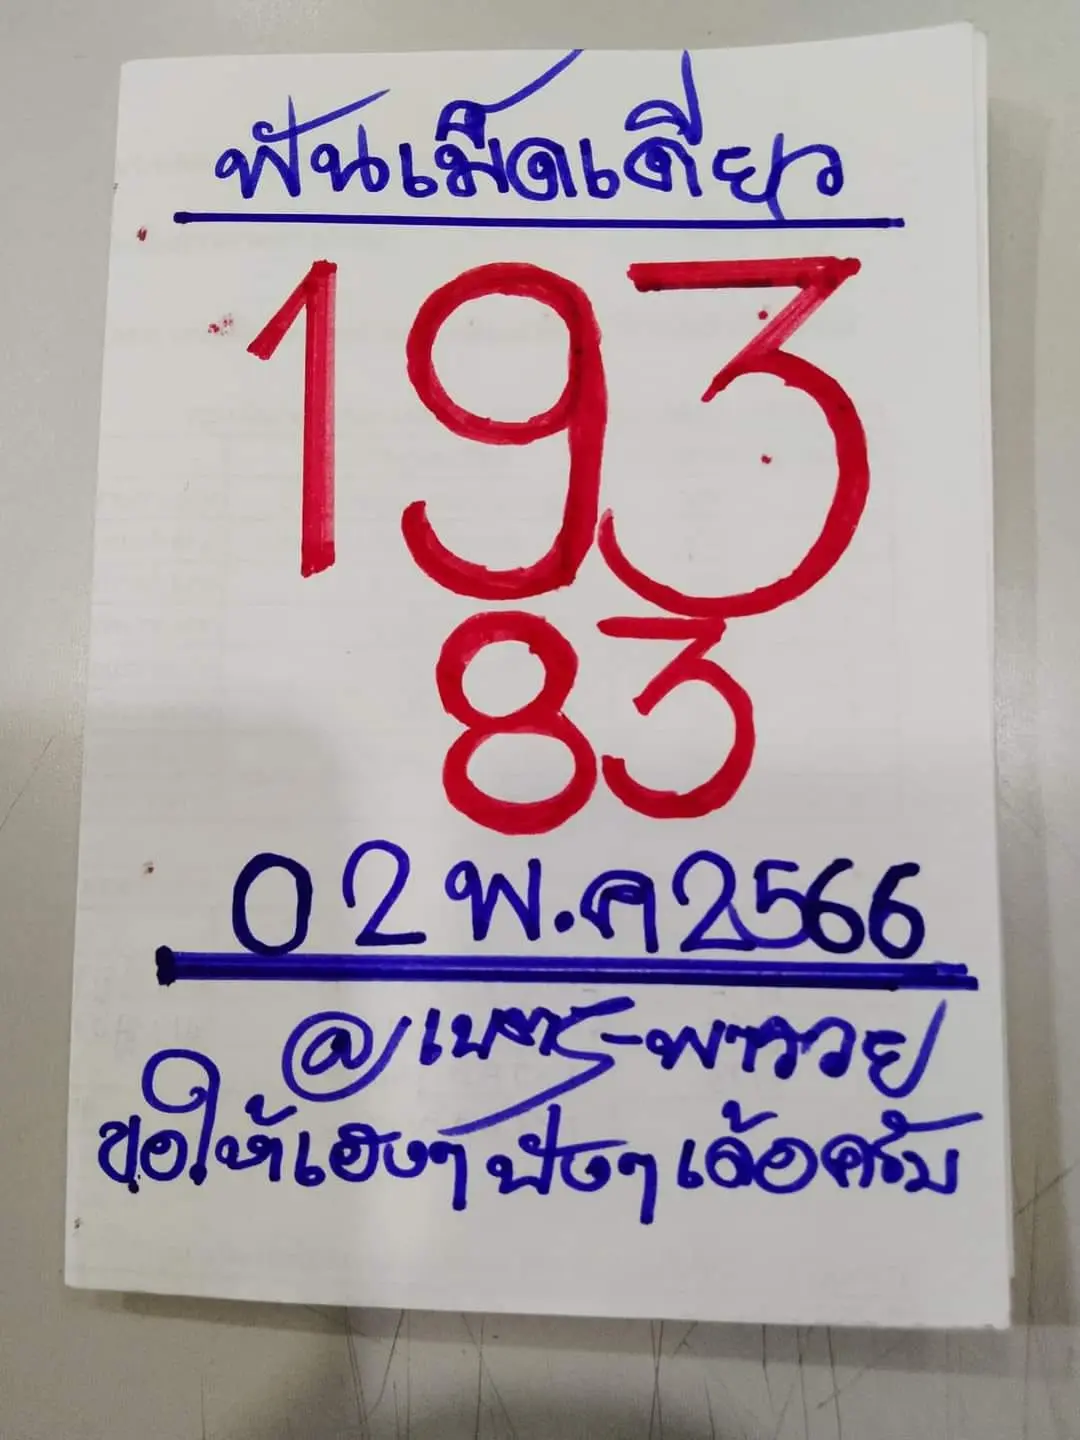 ฟันเม็ดเดียว
193
83
02 พ.ค 2566
พารวย
ขอให้เฮงๆ ปังๆ เด้อครับ